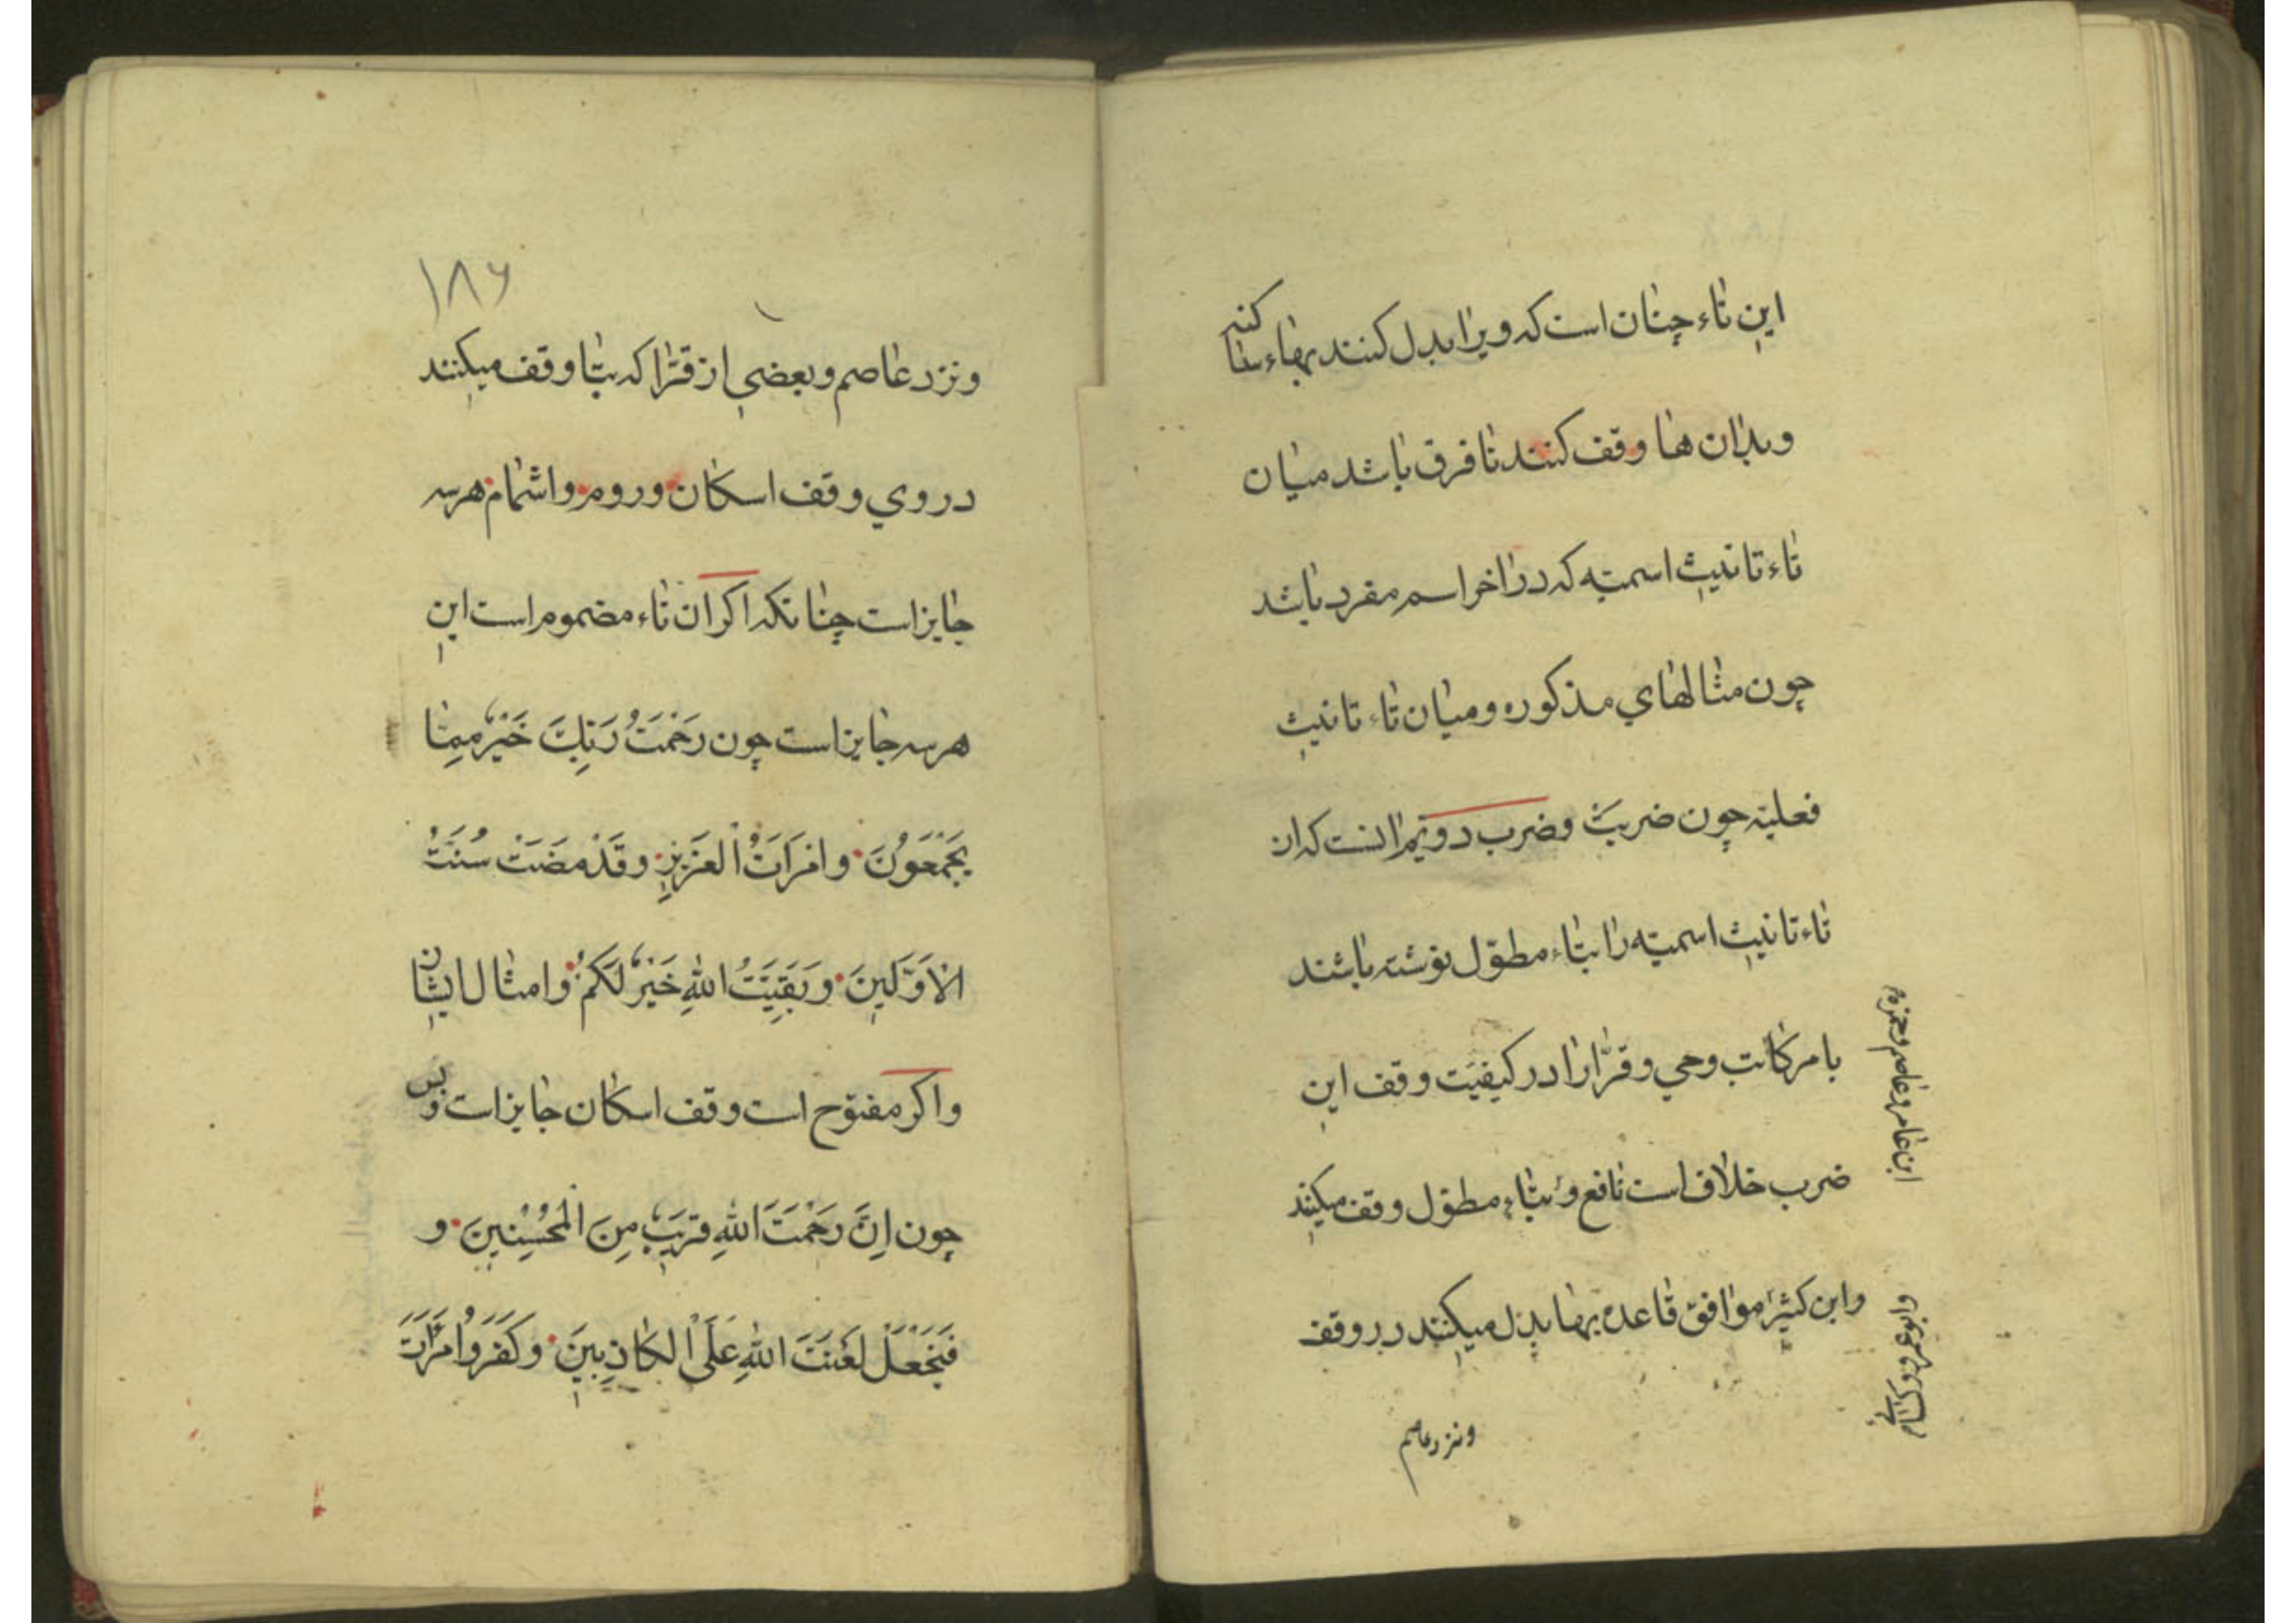 این تاء چنان است که ویرا بدل کنند بهاء ساکنه
وبدان ها وقف کنند تا فرق باشد میان
تاء تانیث اسمیّه که در اخر اسم مفرد باشد
چون مثالهای مذکوره ومیان تاء تانیث
فعلیّه چون ضربَتْ وضرب دویم انست که ان
تاء تانیث اسمیّه را بتاء مطوّل نوشته باشند
بامر کاتب وحی وقرّا را در کیفیّت وقف این
ضرب خلاف است نافع و بتاء مطوّل وقف میکنند
ابن عامر وعاصم وحمزه
وابن کثیر موافق قاعده بها بدل میکنند در وقف
وابو عمرو وکسایی
ونزد عاصم
۱۸۶
ونزد عاصم وبعضی از قرّا که بتا وقف میکنند
در وی وقف اسکان وروم واشمام هرسه
جایز است چنانکه اکر ان تاء مضموم است این
هرسه جایز است چون رَحْمَتُ رَبِّكَ خَيْرٌ مِمَّا
يَجْمَعُونَ وامْرَاَتُ الْعَزِيزِ وقَدْ مَضَتْ سُنَّتُ
الْاَوَّلِينَ وبَقِيَّتُ اللهِ خَيْرٌ لَكُمْ وامثال ایشان
واکر مفتوح است وقف اسکان جایز است وبس
چون اِنَّ رَحْمَتَ اللهِ قَرِيبٌ مِنَ الْمُحْسِنِينَ و
فَنَجْعَلْ لَعْنَتَ اللهِ عَلَى الْكَاذِبِينَ وكَفَرُوا امْرَاَتَ